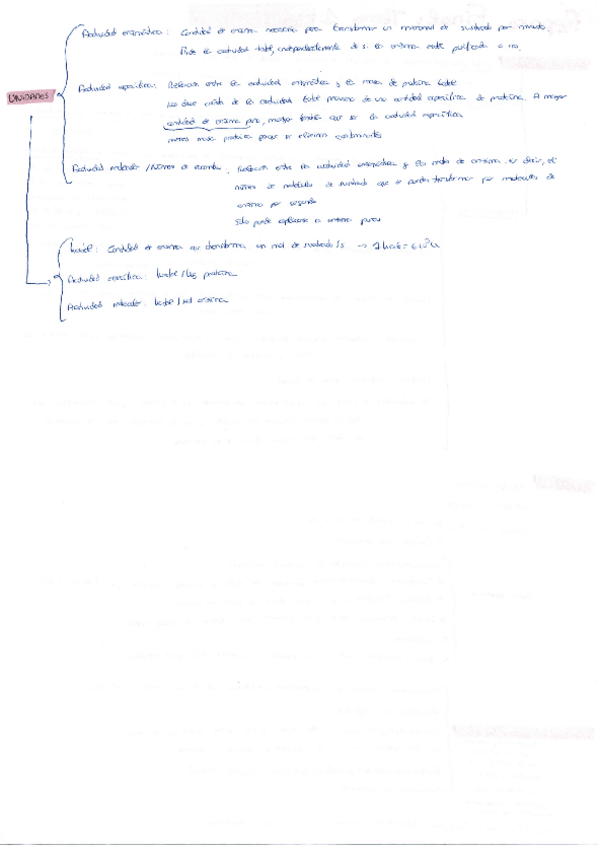 UNIDADES
Actividad enzimática: Cantidad de enzima necesaria para transformar un micromol de sustrato por minuto
Mide la actividad total, independientemente de si la enzima está purificada o no.
Actividad específica: Relación entre la actividad enzimática y la masa de proteína total
Nos dice cuánta de la actividad total proviene de una cantidad específica de proteína. A mayor
cantidad de enzima pura, mayor será la actividad específica
menos masa proteica porque se eliminan contaminantes
Actividad molecular / Número de recambio: Relación entre la actividad enzimática y los moles de enzima. es decir, el
número de moléculas de sustrato que se pueden transformar por molécula de
enzima por segundo
Solo puede aplicarse a enzimas puras
Katal: Cantidad de enzima que transforma un mol de sustrato/s → 1 katal =
Actividad específica: katal/kg proteína
Actividad molecular: katal/mol enzima